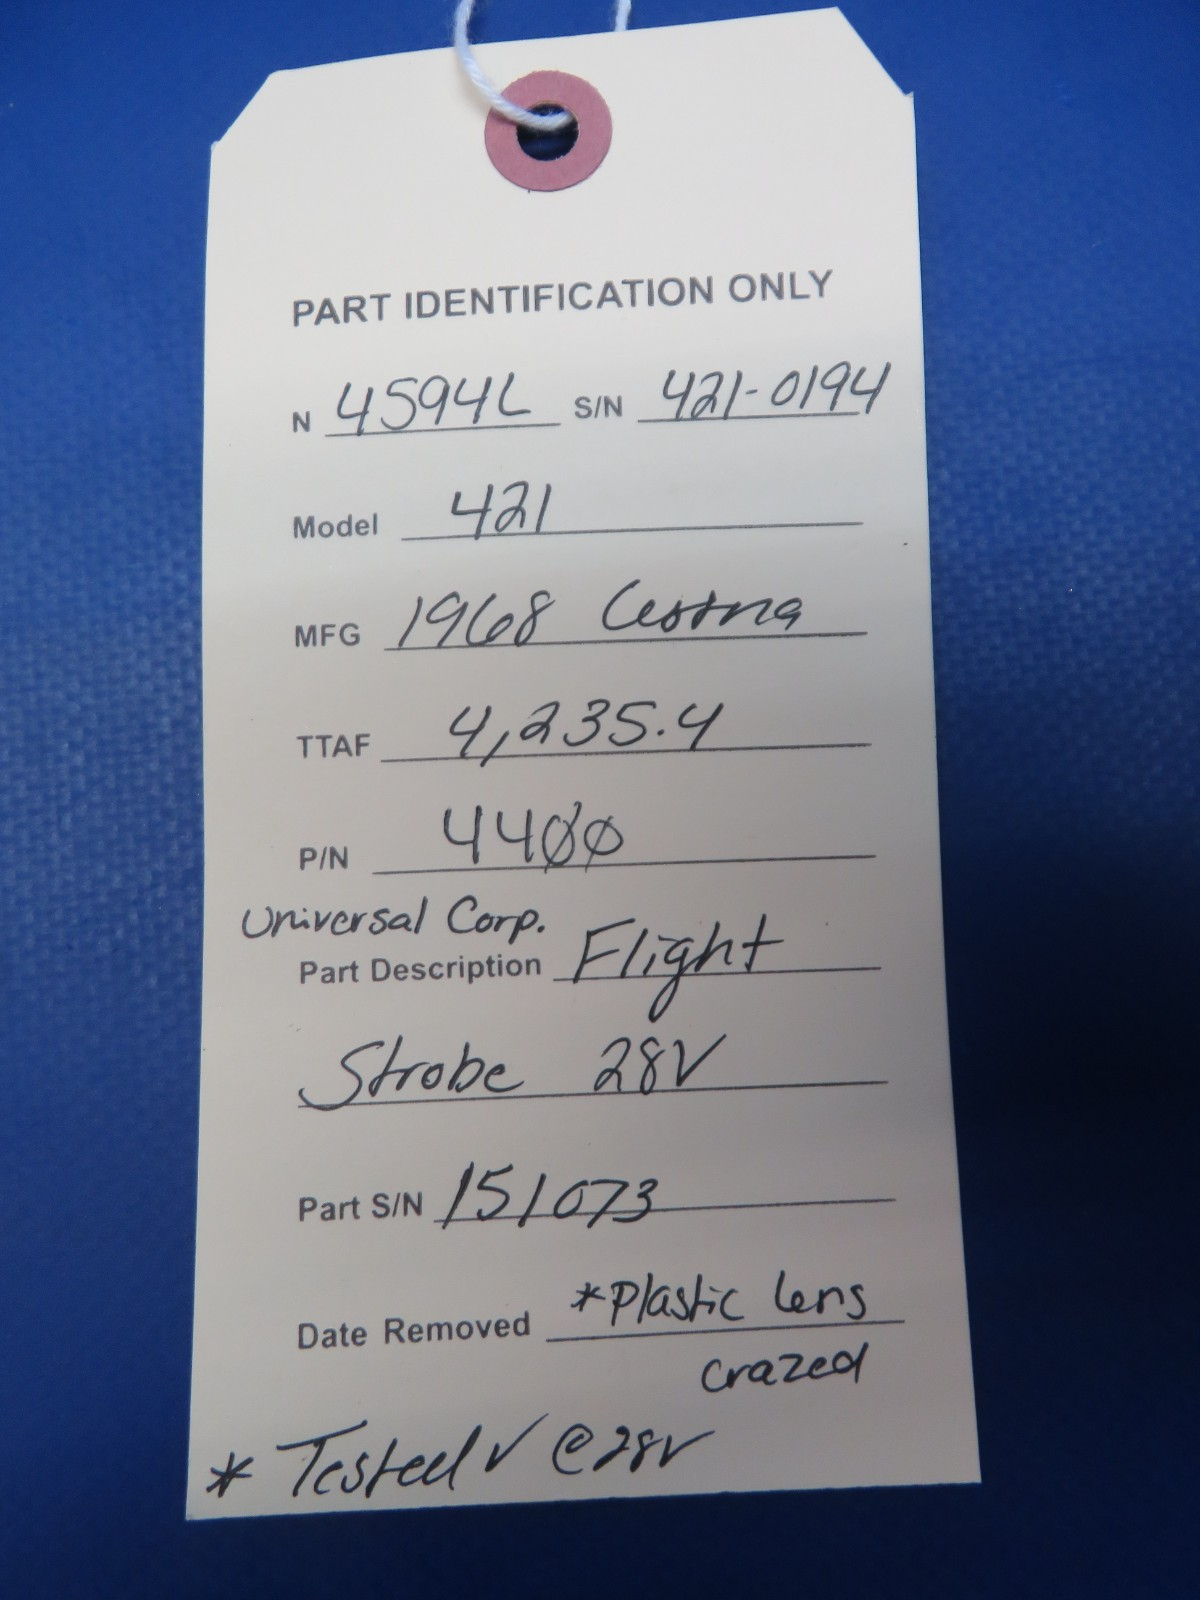 PART IDENTIFICATION ONLY
N 4594L S/N 421-0194
Model 421
MFG 1968 Cessna
TTAF 4,235.4
P/N 4400
Universal Corp.
Part Description Flight
Strobe 28V
Part S/N 151073
Date Removed *Plastic lens
crazed
* Tested ✓ @ 28V